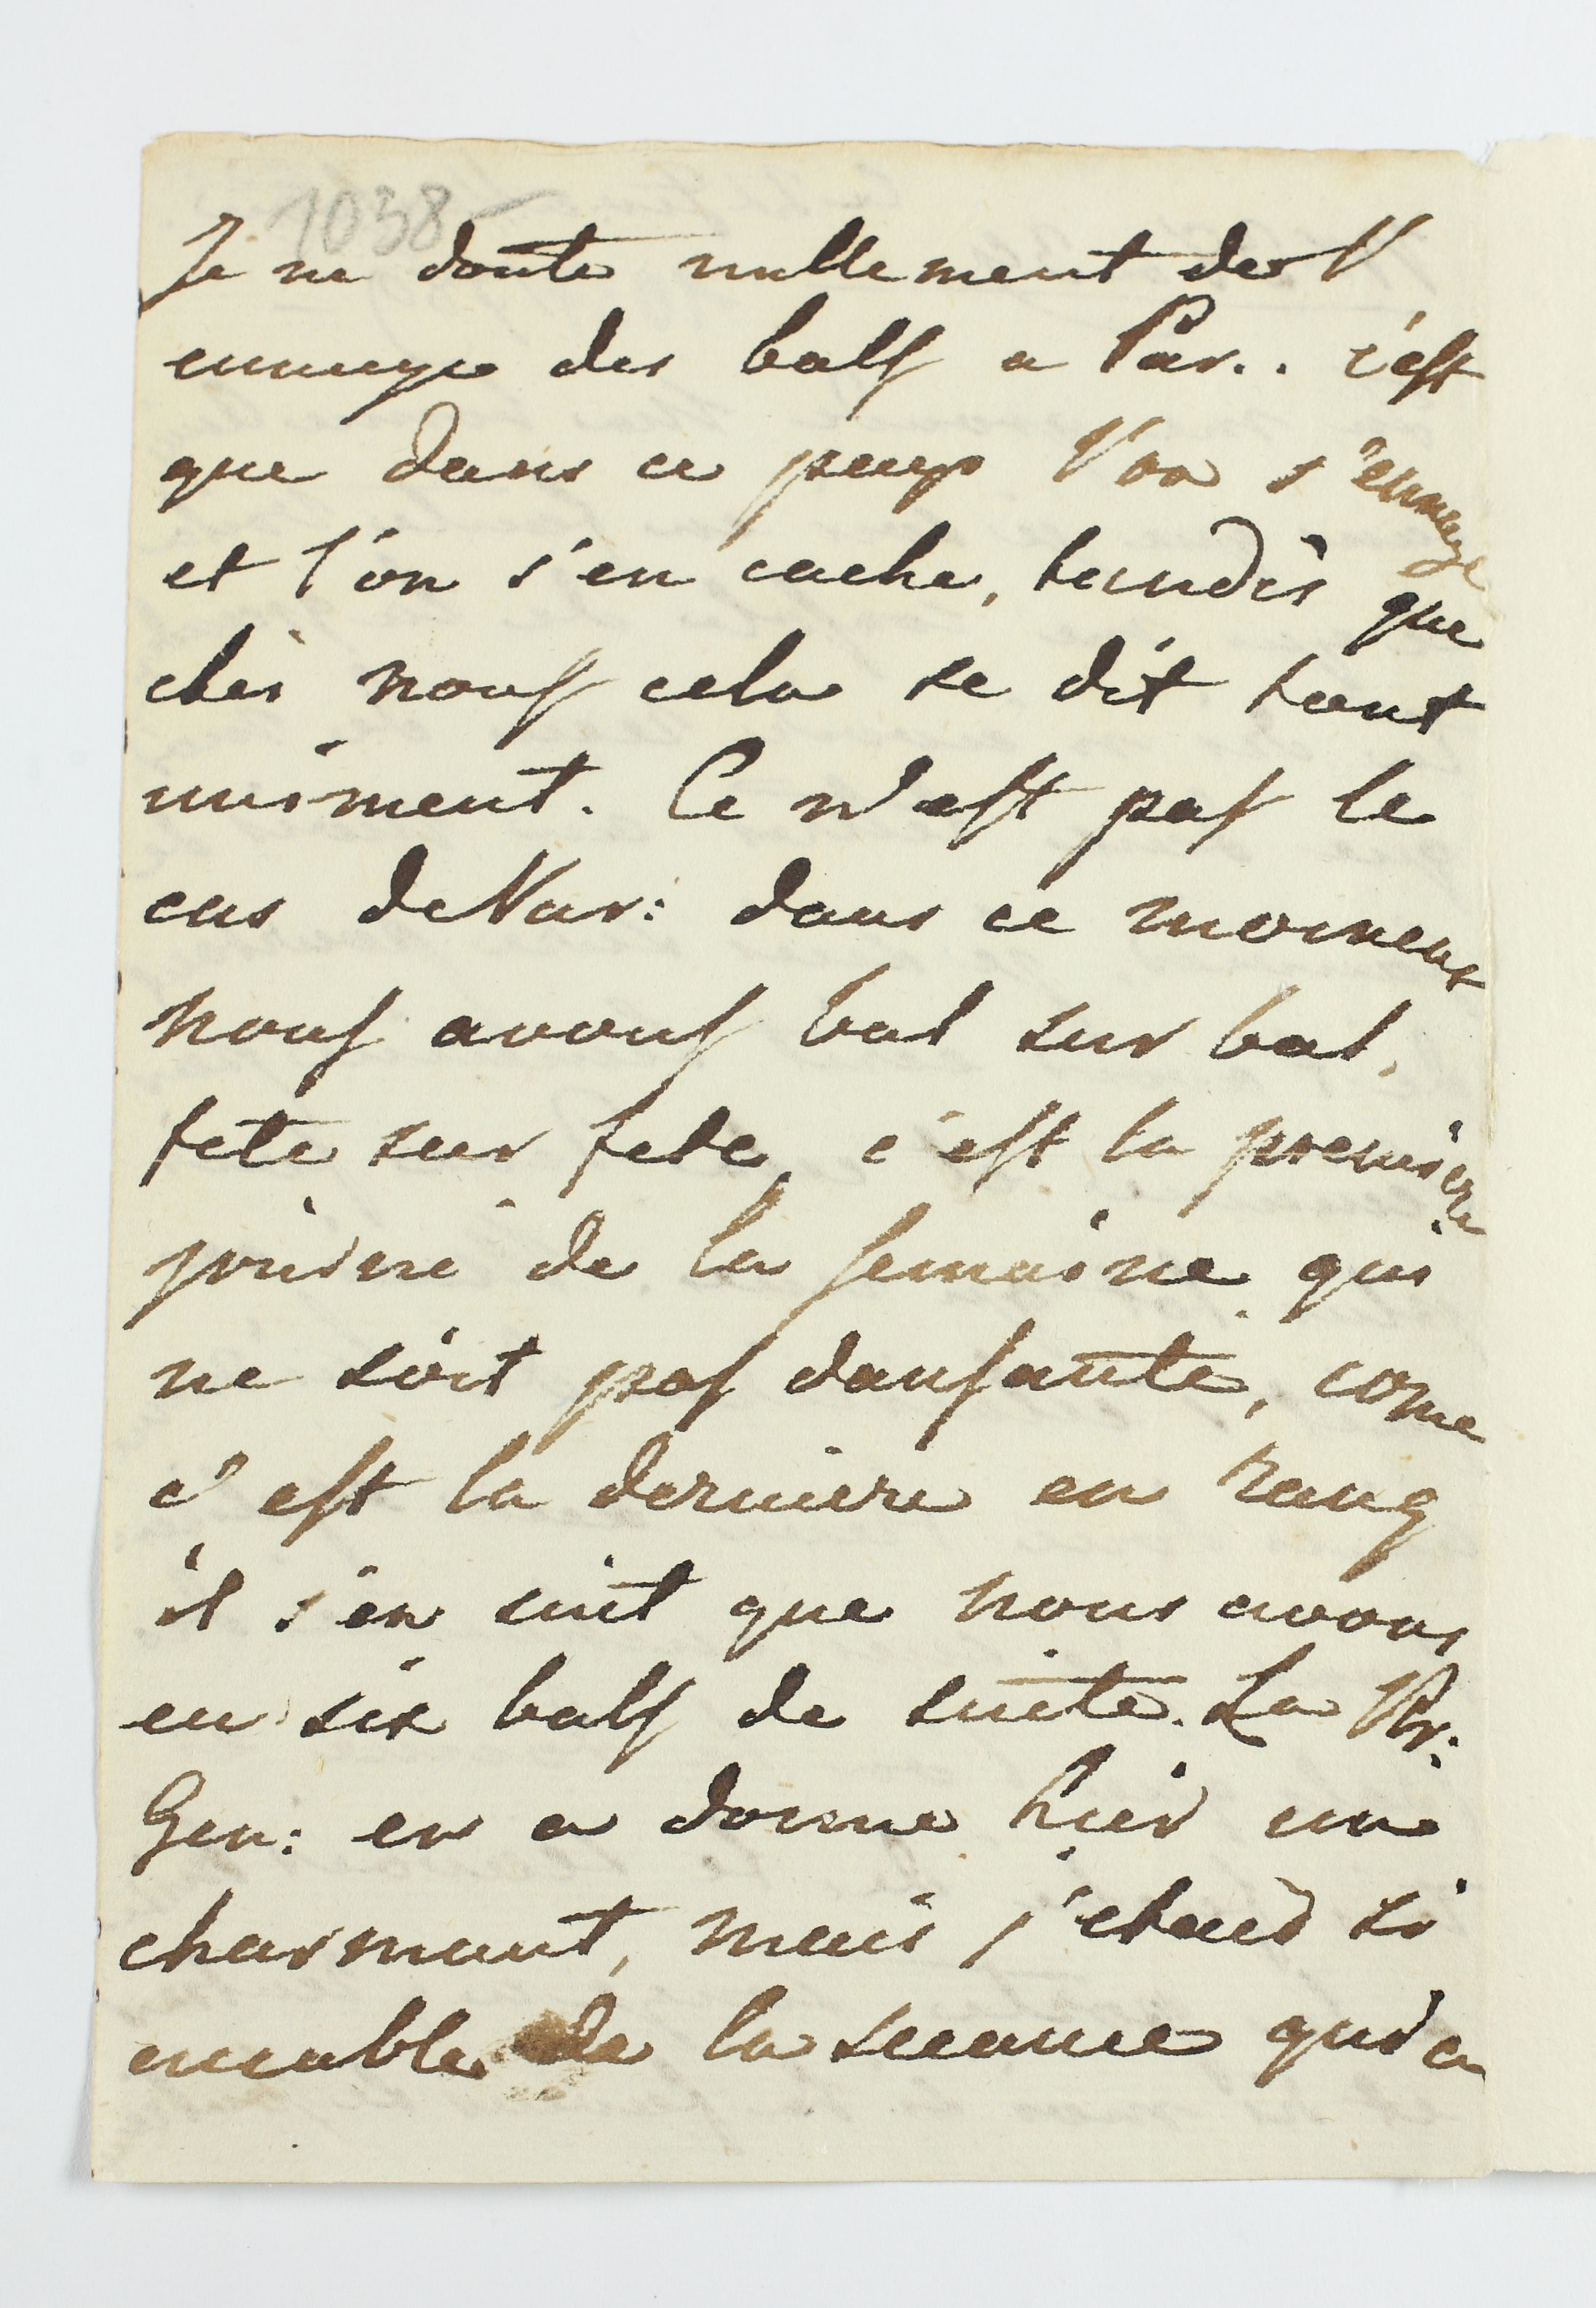 1038
Je ne doute nullement de l'
ennuye des bals a Par.. c'est
que dans ce peys l'on s'ennuye
et l'on s'en cache, tandis que
chés nous cela se dit tout
uniment. Ce n'est pas le
cas de Var: dans ce moment
nous avons bal sur bal,
fete sur fete, c'est la premiere
de la semaine qui
ne soit pas dansante, come
c'est la derniere en rang
il s'en suit que nous avons
eu six bals de suite. La Pr:
Gen: en a donne hier un
charmant, mais j'etais si
de la seance qu'en